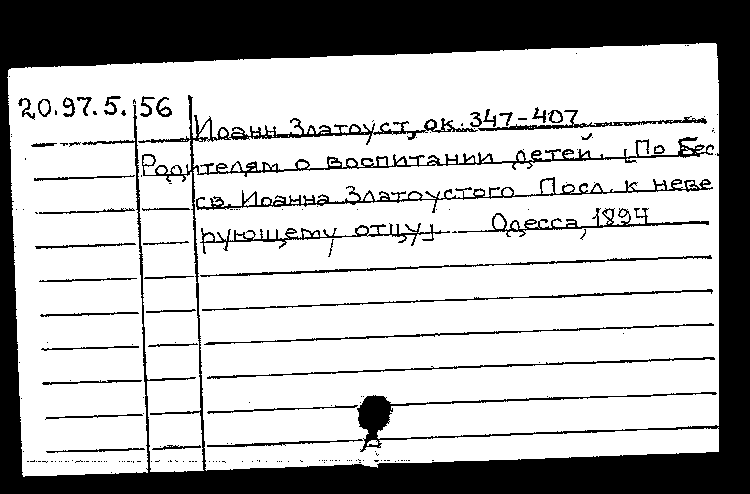 20.97.5. 56
Иоанн Златоуст, ок. 347-407
Родителям о воспитании детей. [По Бес.
св. Иоанна Златоустого Посл. к неве
рующему отцу] Одесса, 1894